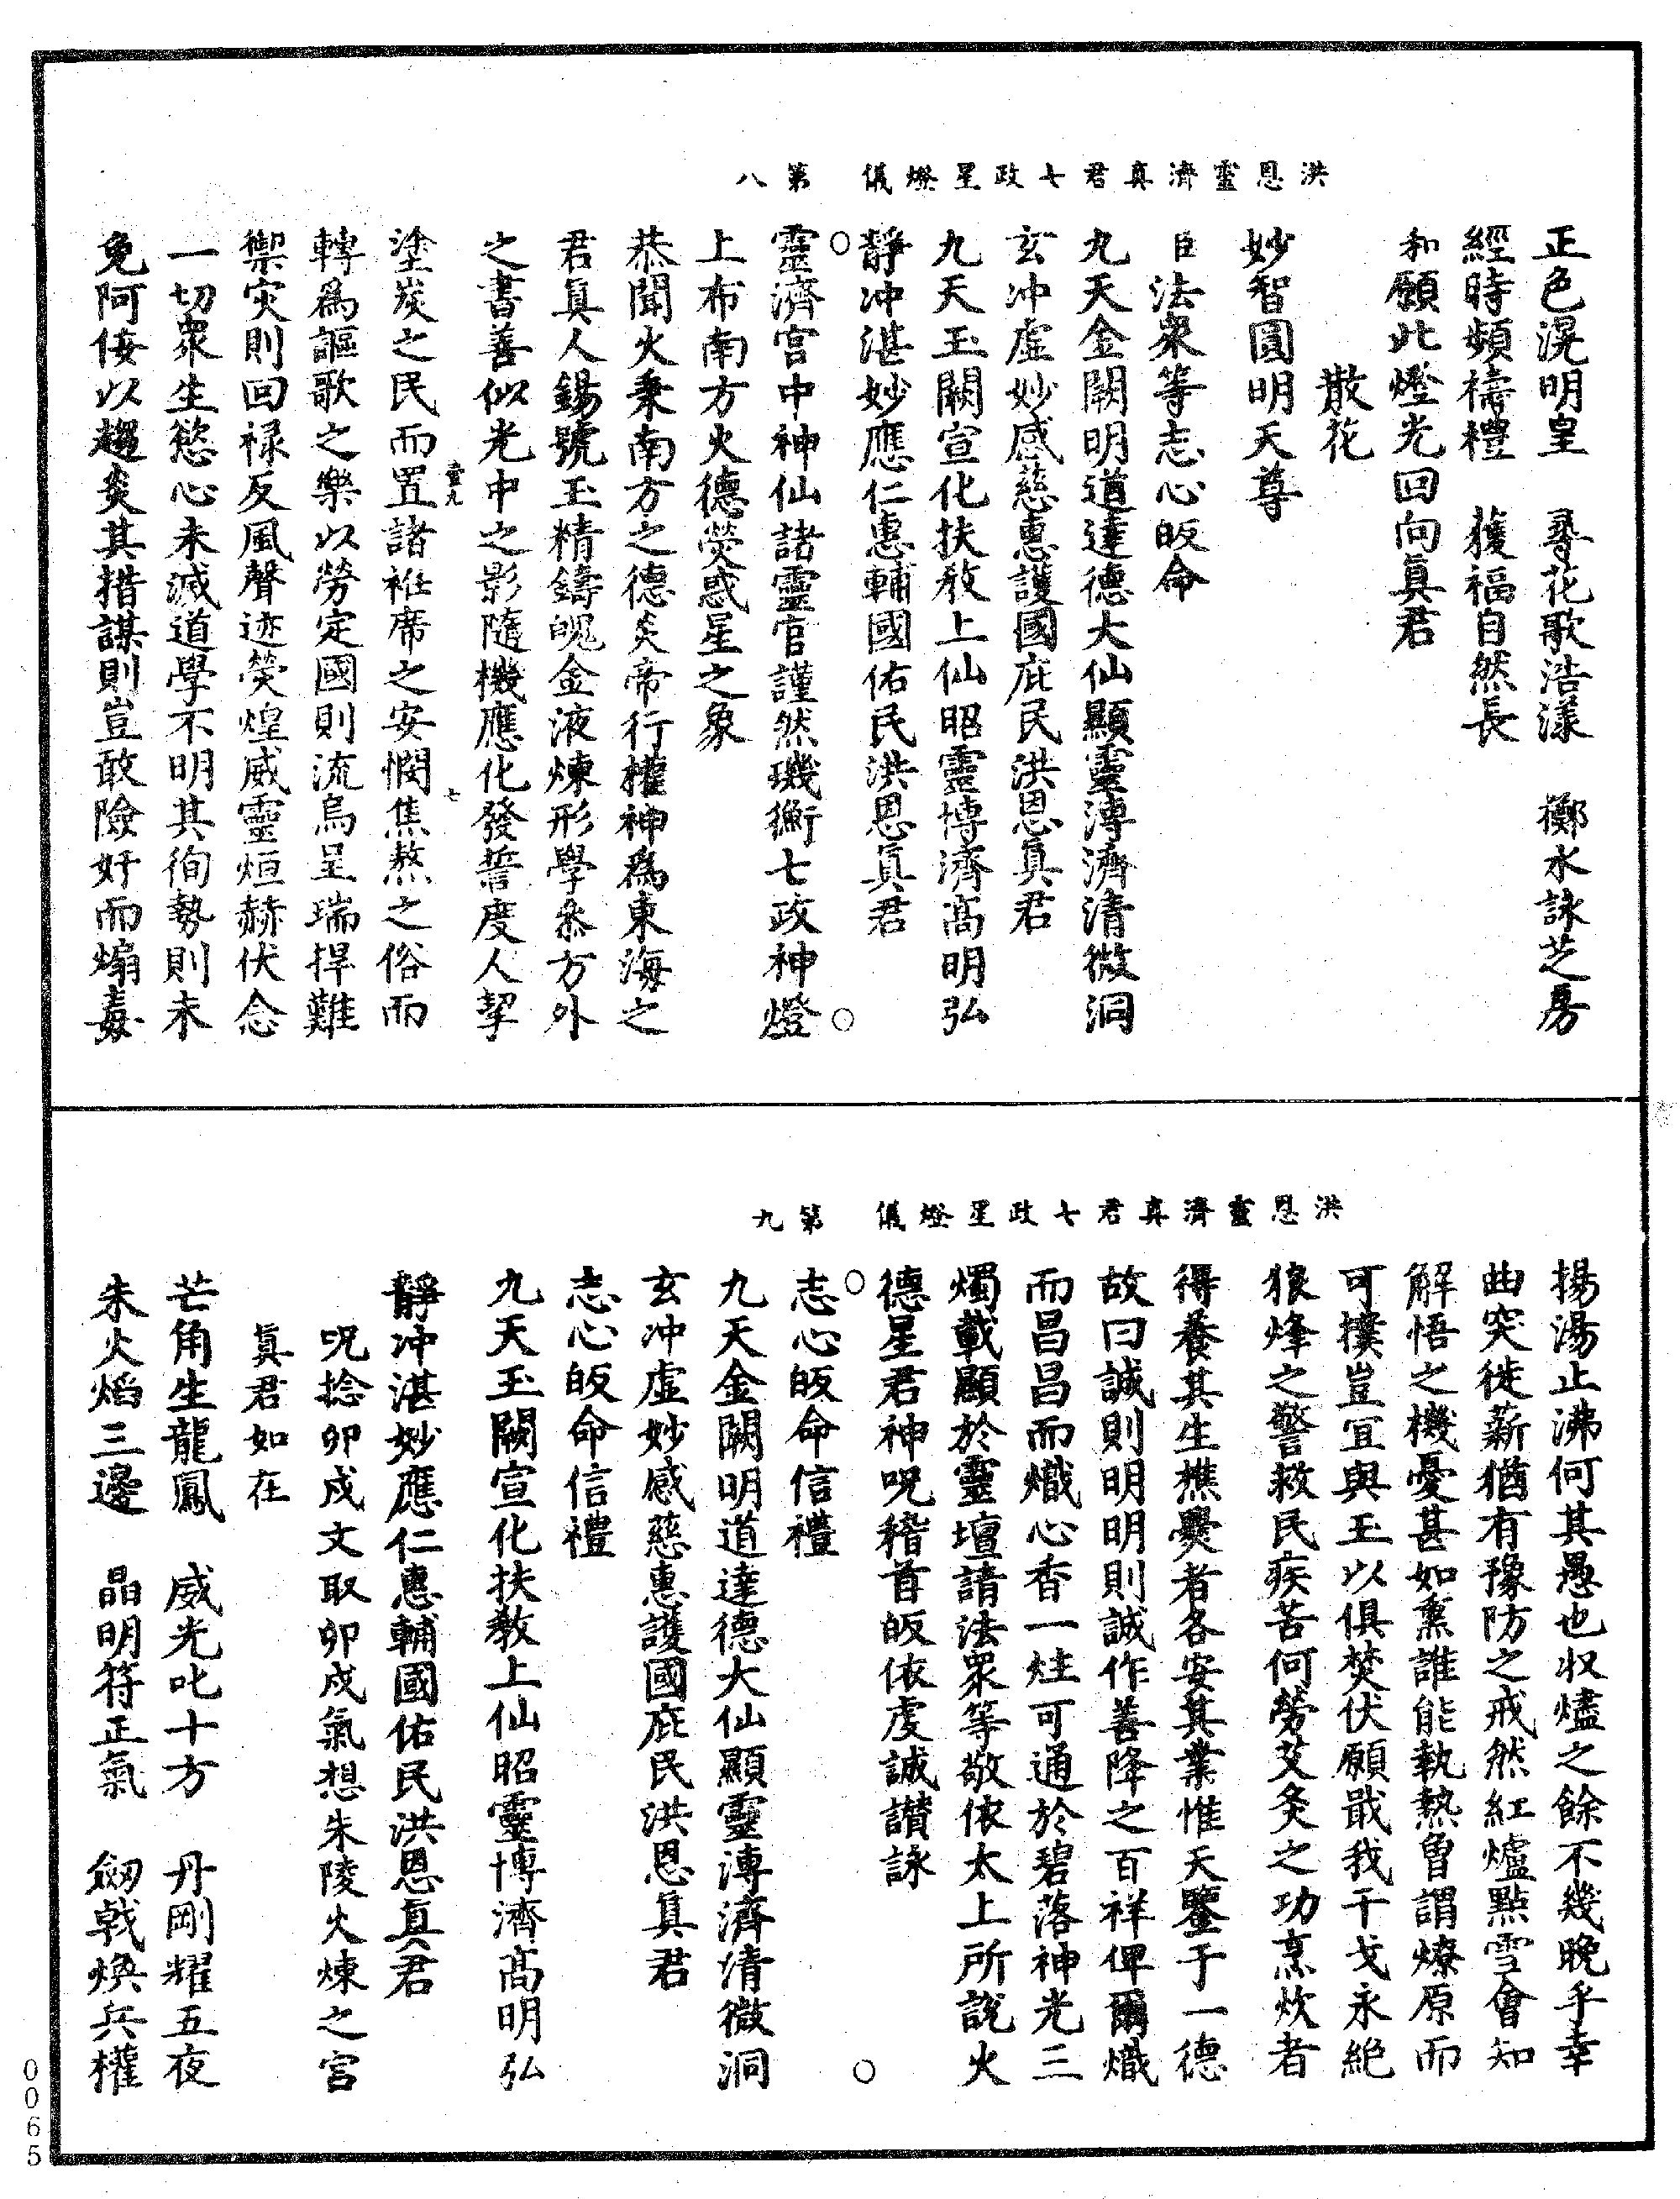 洪恩靈濟真君七政星燈儀　第八
正色滉明皇　尋花歌浩漾　擲水詠芝房
經時頻禱禮　獲福自然長
和願此燈光回向真君
散花
妙智圓明天尊
臣法衆等志心皈命
九天金闕明道達德大仙顯靈溥濟清微洞
玄冲虛妙感慈惠護國庇民洪恩真君
九天玉闕宣化扶教上仙昭靈博濟高明弘
靜冲湛妙應仁惠輔國佑民洪恩真君
靈濟宫中神仙諸靈官謹然璣衡七政神燈
上布南方火德熒惑星之象
恭聞火秉南方之德炎帝行權神爲東海之
君真人錫號玉精鑄魄金液煉形學叅方外
之書善似光中之影隨機應化發誓度人挈
塗炭之民而置諸袵席之安憫焦熬之俗而
轉爲謳歌之樂以勞定國則流烏呈瑞捍難
禦灾則回禄反風聲迹熒煌威靈烜赫伏念
一切衆生慾心未滅道學不明其徇勢則未
免阿倿以趨炎其措謀則豈敢險奸而煽毒
壹九
七
洪恩靈濟真君七政星燈儀　第九
揚湯止沸何其愚也収燼之餘不幾晚乎幸
曲突徙薪猶有豫防之戒然紅爐點雪會知
解悟之機憂甚如熏誰能執熱曾謂燎原而
可撲豈宜與玉以俱焚伏願戢我干戈永絶
狼烽之警救民疾苦何勞艾灸之功烹炊者
得養其生樵爨者各安其業惟天鑒于一德
故曰誠則明明則誠作善降之百祥俾爾熾
而昌昌而熾心香一炷可通於碧落神光三
燭載顯於靈壇請法衆等敬依太上所說火
德星君神呪稽首皈依虔誠讃詠
志心皈命信禮
九天金闕明道達德大仙顯靈溥濟清微洞
玄冲虛妙感慈惠護國庇民洪恩真君
志心皈命信禮
九天玉闕宣化扶教上仙昭靈博濟高明弘
靜冲湛妙應仁惠輔國佑民洪恩真君
呪捻卯戌文取卯戌氣想朱陵火煉之宫
真君如在
芒角生龍鳳　威光叱十方　丹剛耀五夜
朱火焰三邊　晶明符正氣　劔戟煥兵權
0065